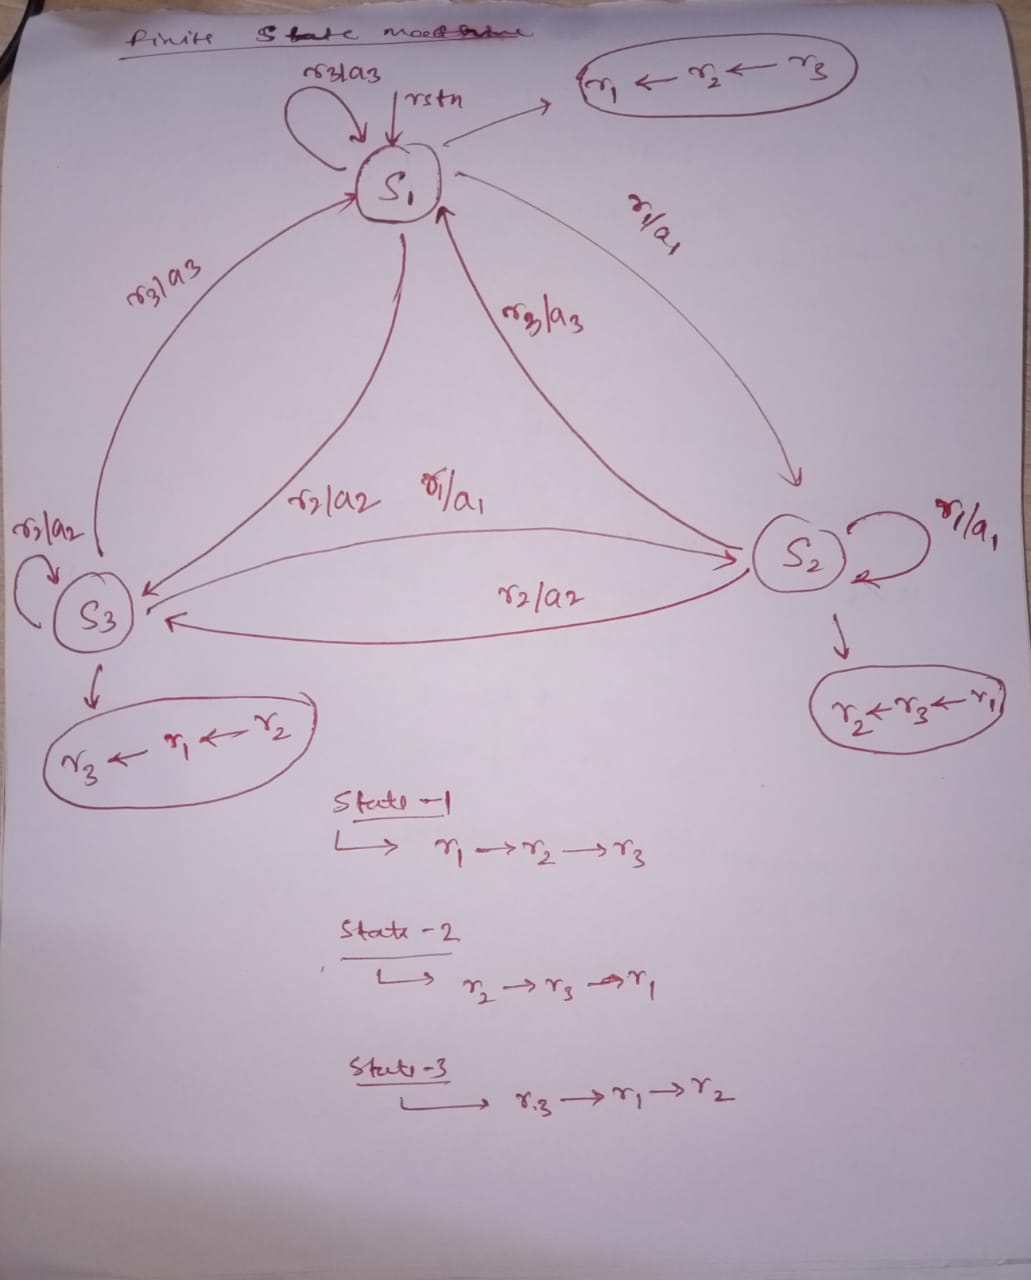 Finite State
r3/a3
rstn
r1 ← r2 ← r3
S1
r1/a1
r3/a3
r3/a3
r2/a2
r1/a1
r2/a2
S3
S2
r1/a1
r2/a2
r3 ← r1 ← r2
r2 ← r3 ← r1
State -1
↳ r1 → r2 → r3
State -2
↳ r2 → r3 → r1
State -3
↳ r3 → r1 → r2